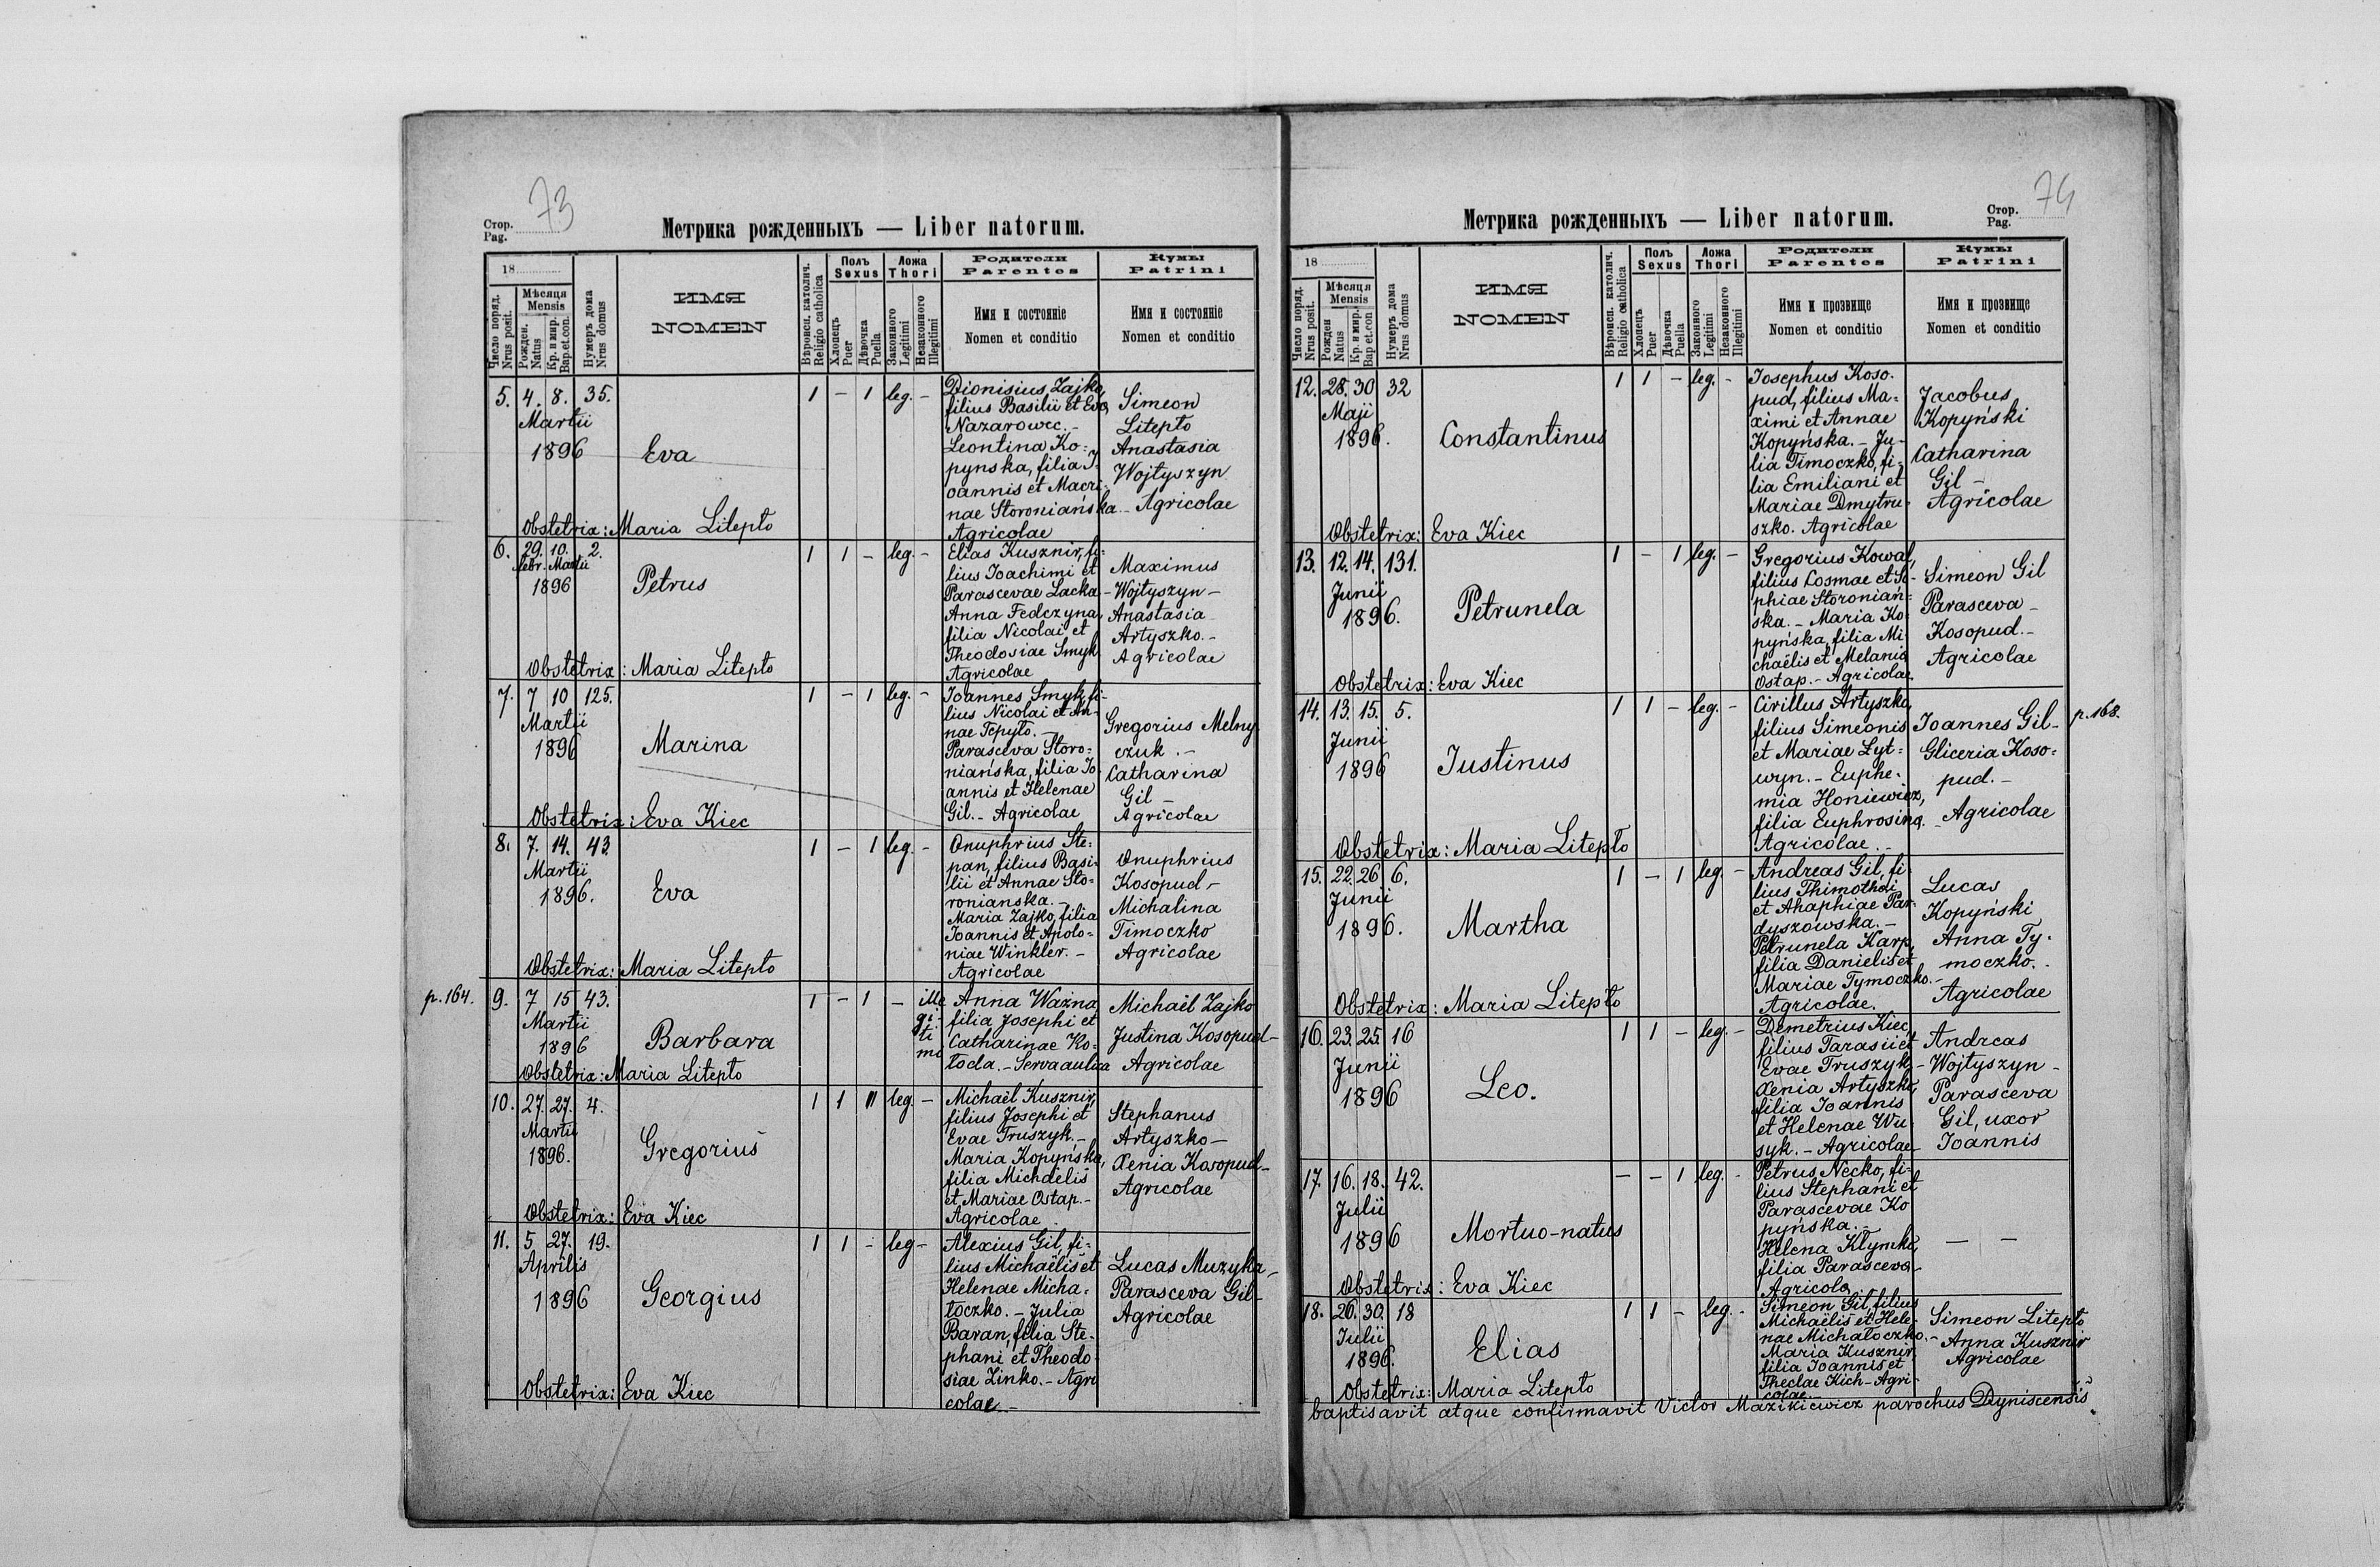 Стор.
Pag. 73
Метрика рожденныхъ — Liber natorum.
18
Число поряд.
Nrus posit.
Мѣсяця
Mensis
Рожден.
Natus
Кр. и мир.
Bap.et.con.
Нумеръ дома
Nrus domus
ИМЯ
NOMEN
Вѣроисп. католич.
Religio catholica
Полъ
Sexus
Хлопецъ
Puer
Дѣвочка
Puella
Ложа
Thori
Законного
Legitimi
Незаконного
Illegitimi
Родители
Parentes
Имя и состояніе
Nomen et conditio
Кумы
Patrini
Имя и состояніе
Nomen et conditio
5. 4. 8. 35.
Martii
1896
Eva
1 - 1 leg. -
Dionisius Zajko,
filius Basilii et Evo,
Nazarowec. -
Leontina Ko-
pynska, filia J-
oannis et Macri-
nae Storoniańska. -
Agricolae
Simeon
Litepto
Anastasia
Wojtyszyn
Agricolae
Obstetrix: Maria Litepto
6. 29. 10. 2.
febr. Martii
1896
Petrus
1 1 - leg. -
Elias Kusznir, fi-
lius Joachimi et
Parascevae Lacka -
Anna Fedczyna,
filia Nicolai et
Theodosiae Smyk
Agricolae
Maximus
Wojtyszyn -
Anastasia
Artyszko. -
Agricolae
Obstetrix: Maria Litepto
7. 7 10 125.
Martii
1896
Marina
1 - 1 leg. -
Joannes Smyk fi-
lius Nicolai et An-
nae Tepyto. -
Parasceva Storo-
niańska, filia Jo
annis et Helenae
Gil. - Agricolae
Gregorius Melny-
czuk. -
Catharina
Gil -
Agricolae
Obstetrix: Eva Kiec
8. 7. 14. 43.
Martii
1896.
Eva
1 - 1 leg. -
Onuphrius Ste-
pan, filius Basi-
lii et Annae Sto-
ronianska. -
Maria Zajko, filia
Joannis et Apolo-
niae Winkler. -
Agricolae
Onuphrius
Kosopud -
Michalina
Timoczko
Agricolae
Obstetrix: Maria Litepto
p. 164. 9. 7 15 43.
Martii
1896
Barbara
1 - 1 - ille
gi-
ti
mi
Anna Ważna,
filia Josephi et
Catharinae Ko-
toda. - Serva aulica
Michaël Zajko
Justina Kosopud -
Agricolae
Obstetrix: Maria Litepto
10. 27. 27. 4.
Martii
1896.
Gregorius
1 1 11 leg. -
Michaël Kusznir,
filius Josephi et
Evae Truszyk. -
Maria Kopyńska,
filia Michaelis
et Mariae Ostap. -
Agricolae
Stephanus
Artyszko -
Xenia Kosopud -
Agricolae
Obstetrix: Eva Kiec
11. 5. 27. 19.
Aprilis
1896
Georgius
1 1 - leg -
Alexius Gil, fi-
lius Michaëlis et
Helenae Micha-
toczko. - Julia
Baran, filia Ste-
phani et Theodo-
siae Zinko. - Agri
colae -
Lucas Muzyka -
Parasceva Gil -
Agricolae
Obstetrix: Eva Kiec
Стор.
Pag. 74
Метрика рожденныхъ — Liber natorum.
18
Число поряд.
Nrus posit.
Мѣсяця
Mensis
Рожден
Natus
Кр. и мир.
Bap et.con
Нумеръ дома
Nrus domus
ИМЯ
NOMEN
Вѣроисп. католич.
Religio catholica
Полъ
Sexus
Хлопецъ
Puer
Дѣвочка
Puella
Ложа
Thori
Законного
Legitimi
Незаконного
Illegitimi
Родители
Parentes
Имя и прозвище
Nomen et conditio
Кумы
Patrini
Имя и прозвище
Nomen et conditio
12. 28. 30 32
Maji
1896.
Constantinus
1 1 - leg. -
Josephus Koso-
pud, filius Ma-
ximi et Annae
Kopyńska. - Ju-
lia Timoczko, fi-
lia Emiliani et
Mariae Dmytru-
szko. Agricolae
Jacobus
Kopyński
Catharina
Gil -
Agricolae
Obstetrix: Eva Kiec
13. 12. 14. 131.
Junii
1896.
Petrunela
1 - 1 leg. -
Gregorius Kowal,
filius Cosmae et So-
phiae Storonian-
ska. - Maria Ko
pyńska, filia Mi
chaëlis et Melania
Ostap. - Agricolae.
Simeon Gil
Parasceva -
Kosopud. -
Agricolae
Obstetrix: Eva Kiec
14. 13. 15. 5.
Junii
1896
Justinus
1 1 - leg. -
Cirillus Artyszko,
filius Simeonis
et Mariae Lyt-
wyn. - Euphe-
mia Honiewicz,
filia Euphrosina. -
Agricolae. -
Joannes Gil -
Gliceria Koso-
pud. -
Agricolae
p. 168.
Obstetrix: Maria Litepto
15. 22. 26 6.
Junii
1896.
Martha
1 - 1 leg -
Andreas Gil, fi
lius Thimothei
et Ahaphiae Par-
dyszowska. -
Petrunela Karp,
filia Danielis et
Mariae Tymoczko. -
Agricolae.
Lucas
Kopyński
Anna Ty-
moczko. -
Agricolae
Obstetrix: Maria Litepto
16. 23. 25. 16
Junii
1896
Leo.
1 1 - leg. -
Demetrius Kiec,
filius Tarasii et
Evae Truszyk -
Xenia Artyszko,
filia Joannis
et Helenae Wu-
syk. - Agricolae
Andreas
Wojtyszyn -
Parasceva
Gil, uxor
Joannis
17. 16. 18. 42.
Julii
1896
Mortuo-natus
- - 1 leg. -
Petrus Necko, fi-
lius Stephani et
Parascevae Ko
pyńska. -
Helena Klymko,
filia Parasceva -
Agricola
— —
Obstetrix: Eva Kiec
18. 26. 30. 18
Julii
1896.
Elias
1 1 - leg. -
Simeon Gil, filius
Michaëlis et Hele-
nae Michatoczko. -
Maria Kusznir,
filia Joannis et
Theclae Kich - Agri-
colae
Simeon Litepto
Anna Kusznir
Agricolae
Obstetrix: Maria Litepto
baptisavit atque confirmavit Victor Mazikiewicz parochus Dyniscensis.